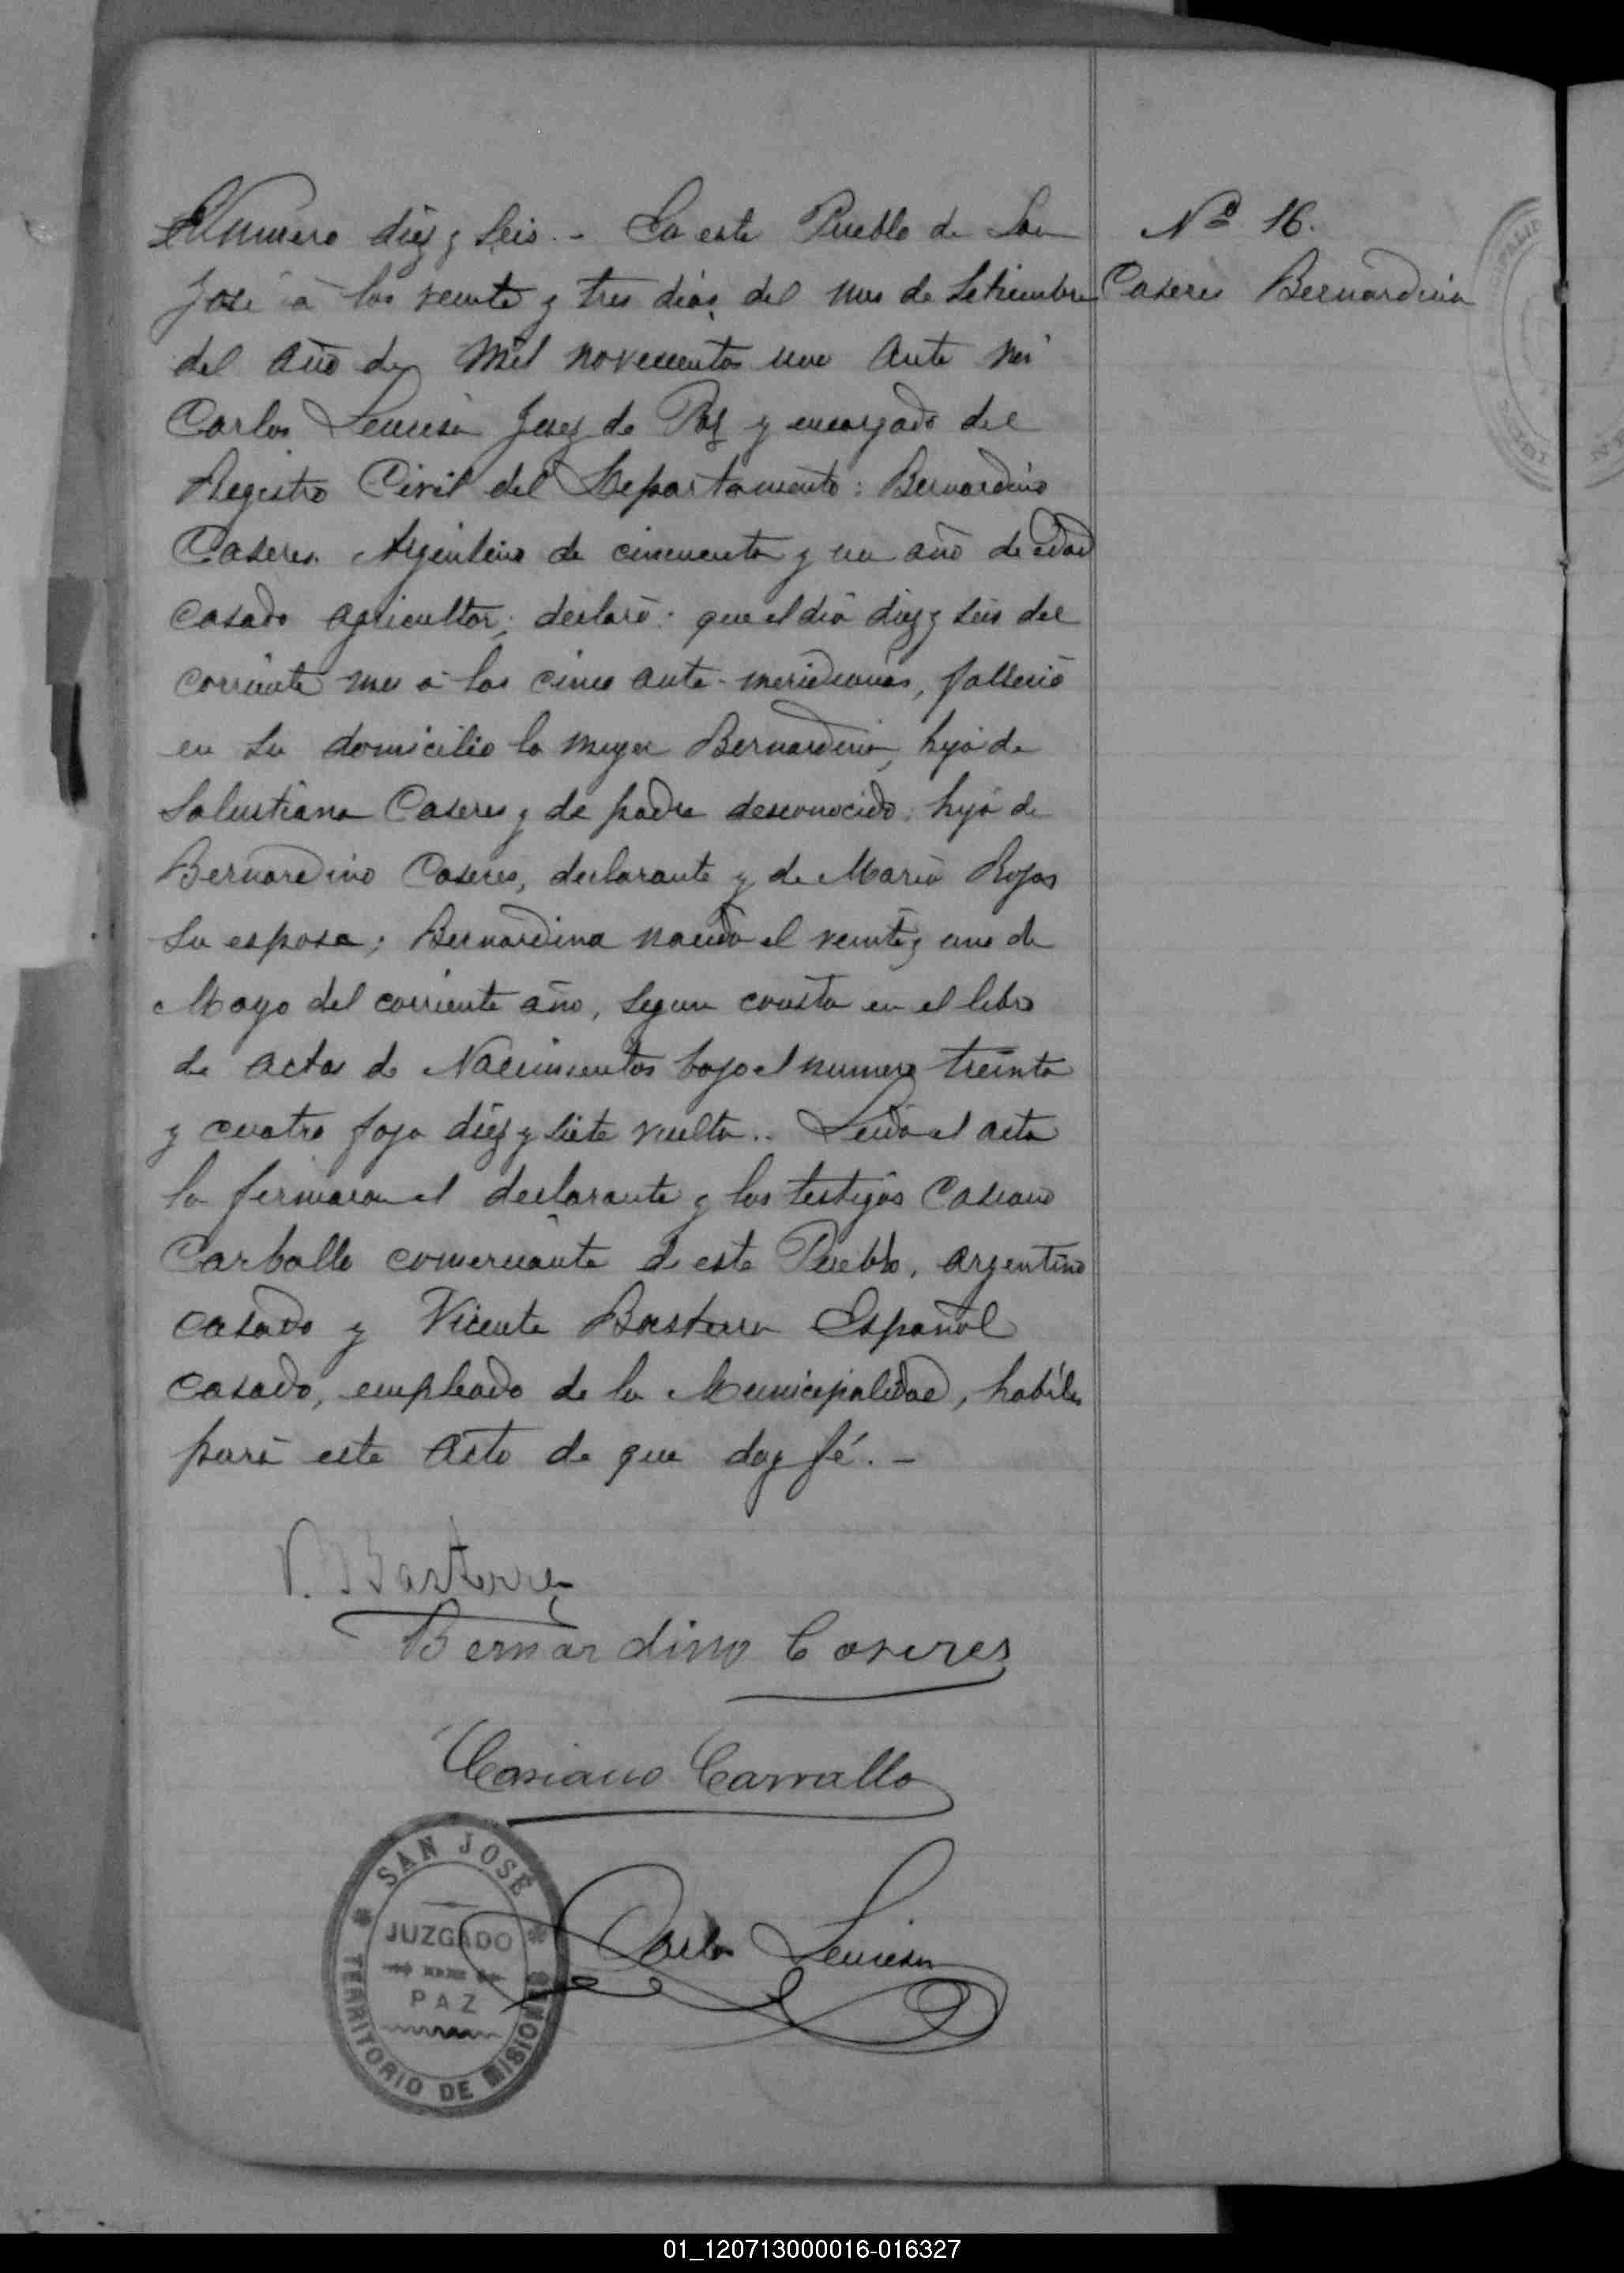 Numero diez y seis. - En este Pueblo de San
José á los veinte y tres dias del mes de Setiembre
del año de mil novecientos uno ante mi
Carlos Juez de Paz y encargado del
Registro Civil del Departamento: Bernardino
Caseres Argentino de cincuenta y un año de edad
casado agricultor; declaró: que el dia diez y seis del
corriente mes á las cinco ante-meridianas, falleció
en su domicilio la mujer Bernardina, hija de
Salustiana Caseres y de padre desconocido; hija de
Bernardino Caseres, declarante y de Maria Rojas
su esposa; Bernardina nacida el veinte y uno de
Mayo del corriente año, segun consta en el libro
de actas de Nacimientos bajo el numero treinta
y cuatro foja diez y siete vuelta.. Leida el acta
la firmaron el declarante y los testigos Casiano
Carballo comerciante de este Pueblo, argentino
casado y Vicente Basterra Español
casado, empleado de la Municipalidad, habiles
para este acto de que doy fé. -
Nº 16.
Caseres Bernardina
V. Basterra
Bernardino Caseres
Casiano Carvallo
Carlos
SAN JOSÉ
JUZGADO
PAZ
TERRITORIO DE MISIONES
01_120713000016-016327